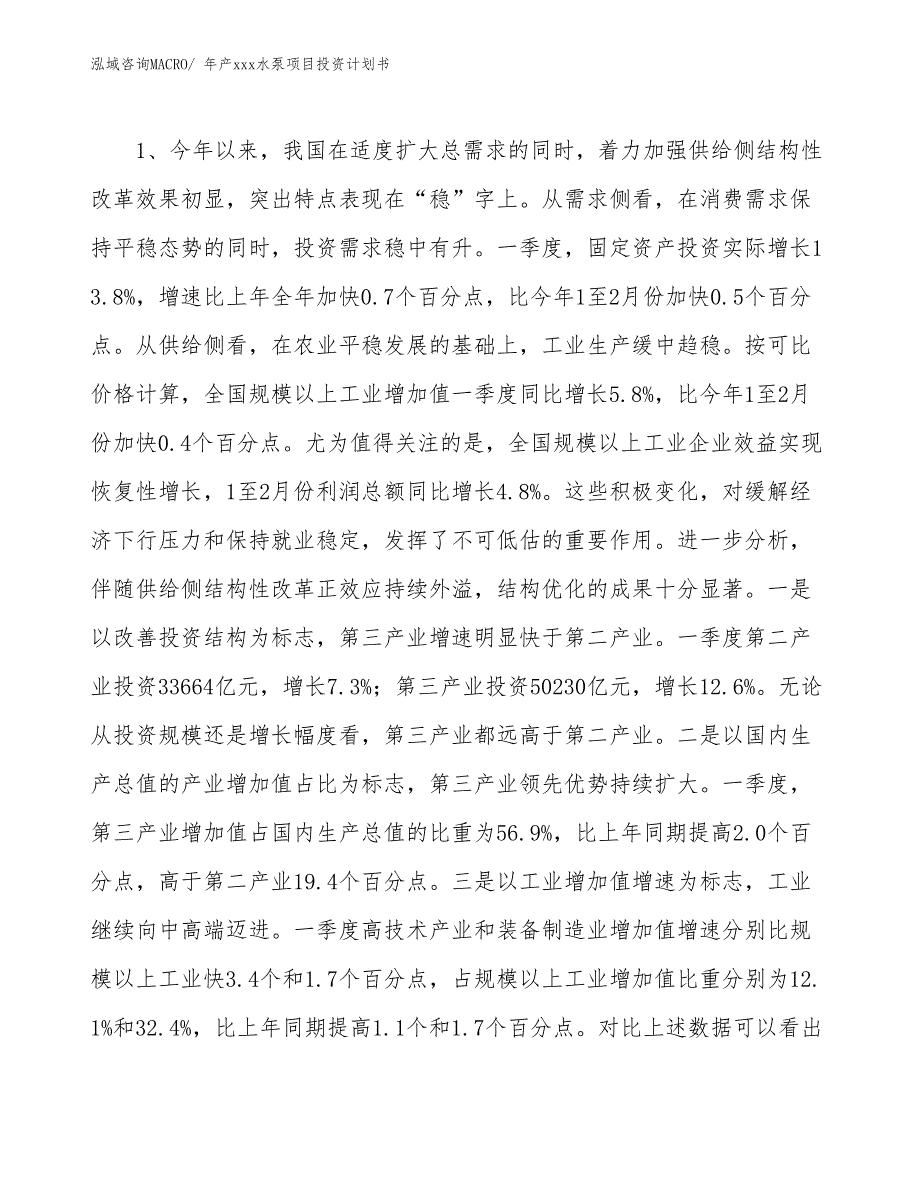 泓域咨询MACRO/ 年产xxx水泵项目投资计划书
1、今年以来，我国在适度扩大总需求的同时，着力加强供给侧结构性
改革效果初显，突出特点表现在“稳”字上。从需求侧看，在消费需求保
持平稳态势的同时，投资需求稳中有升。一季度，固定资产投资实际增长1
3.8%，增速比上年全年加快0.7个百分点，比今年1至2月份加快0.5个百分
点。从供给侧看，在农业平稳发展的基础上，工业生产缓中趋稳。按可比
价格计算，全国规模以上工业增加值一季度同比增长5.8%，比今年1至2月
份加快0.4个百分点。尤为值得关注的是，全国规模以上工业企业效益实现
恢复性增长，1至2月份利润总额同比增长4.8%。这些积极变化，对缓解经
济下行压力和保持就业稳定，发挥了不可低估的重要作用。进一步分析，
伴随供给侧结构性改革正效应持续外溢，结构优化的成果十分显著。一是
以改善投资结构为标志，第三产业增速明显快于第二产业。一季度第二产
业投资33664亿元，增长7.3%；第三产业投资50230亿元，增长12.6%。无论
从投资规模还是增长幅度看，第三产业都远高于第二产业。二是以国内生
产总值的产业增加值占比为标志，第三产业领先优势持续扩大。一季度，
第三产业增加值占国内生产总值的比重为56.9%，比上年同期提高2.0个百
分点，高于第二产业19.4个百分点。三是以工业增加值增速为标志，工业
继续向中高端迈进。一季度高技术产业和装备制造业增加值增速分别比规
模以上工业快3.4个和1.7个百分点，占规模以上工业增加值比重分别为12.
1%和32.4%，比上年同期提高1.1个和1.7个百分点。对比上述数据可以看出